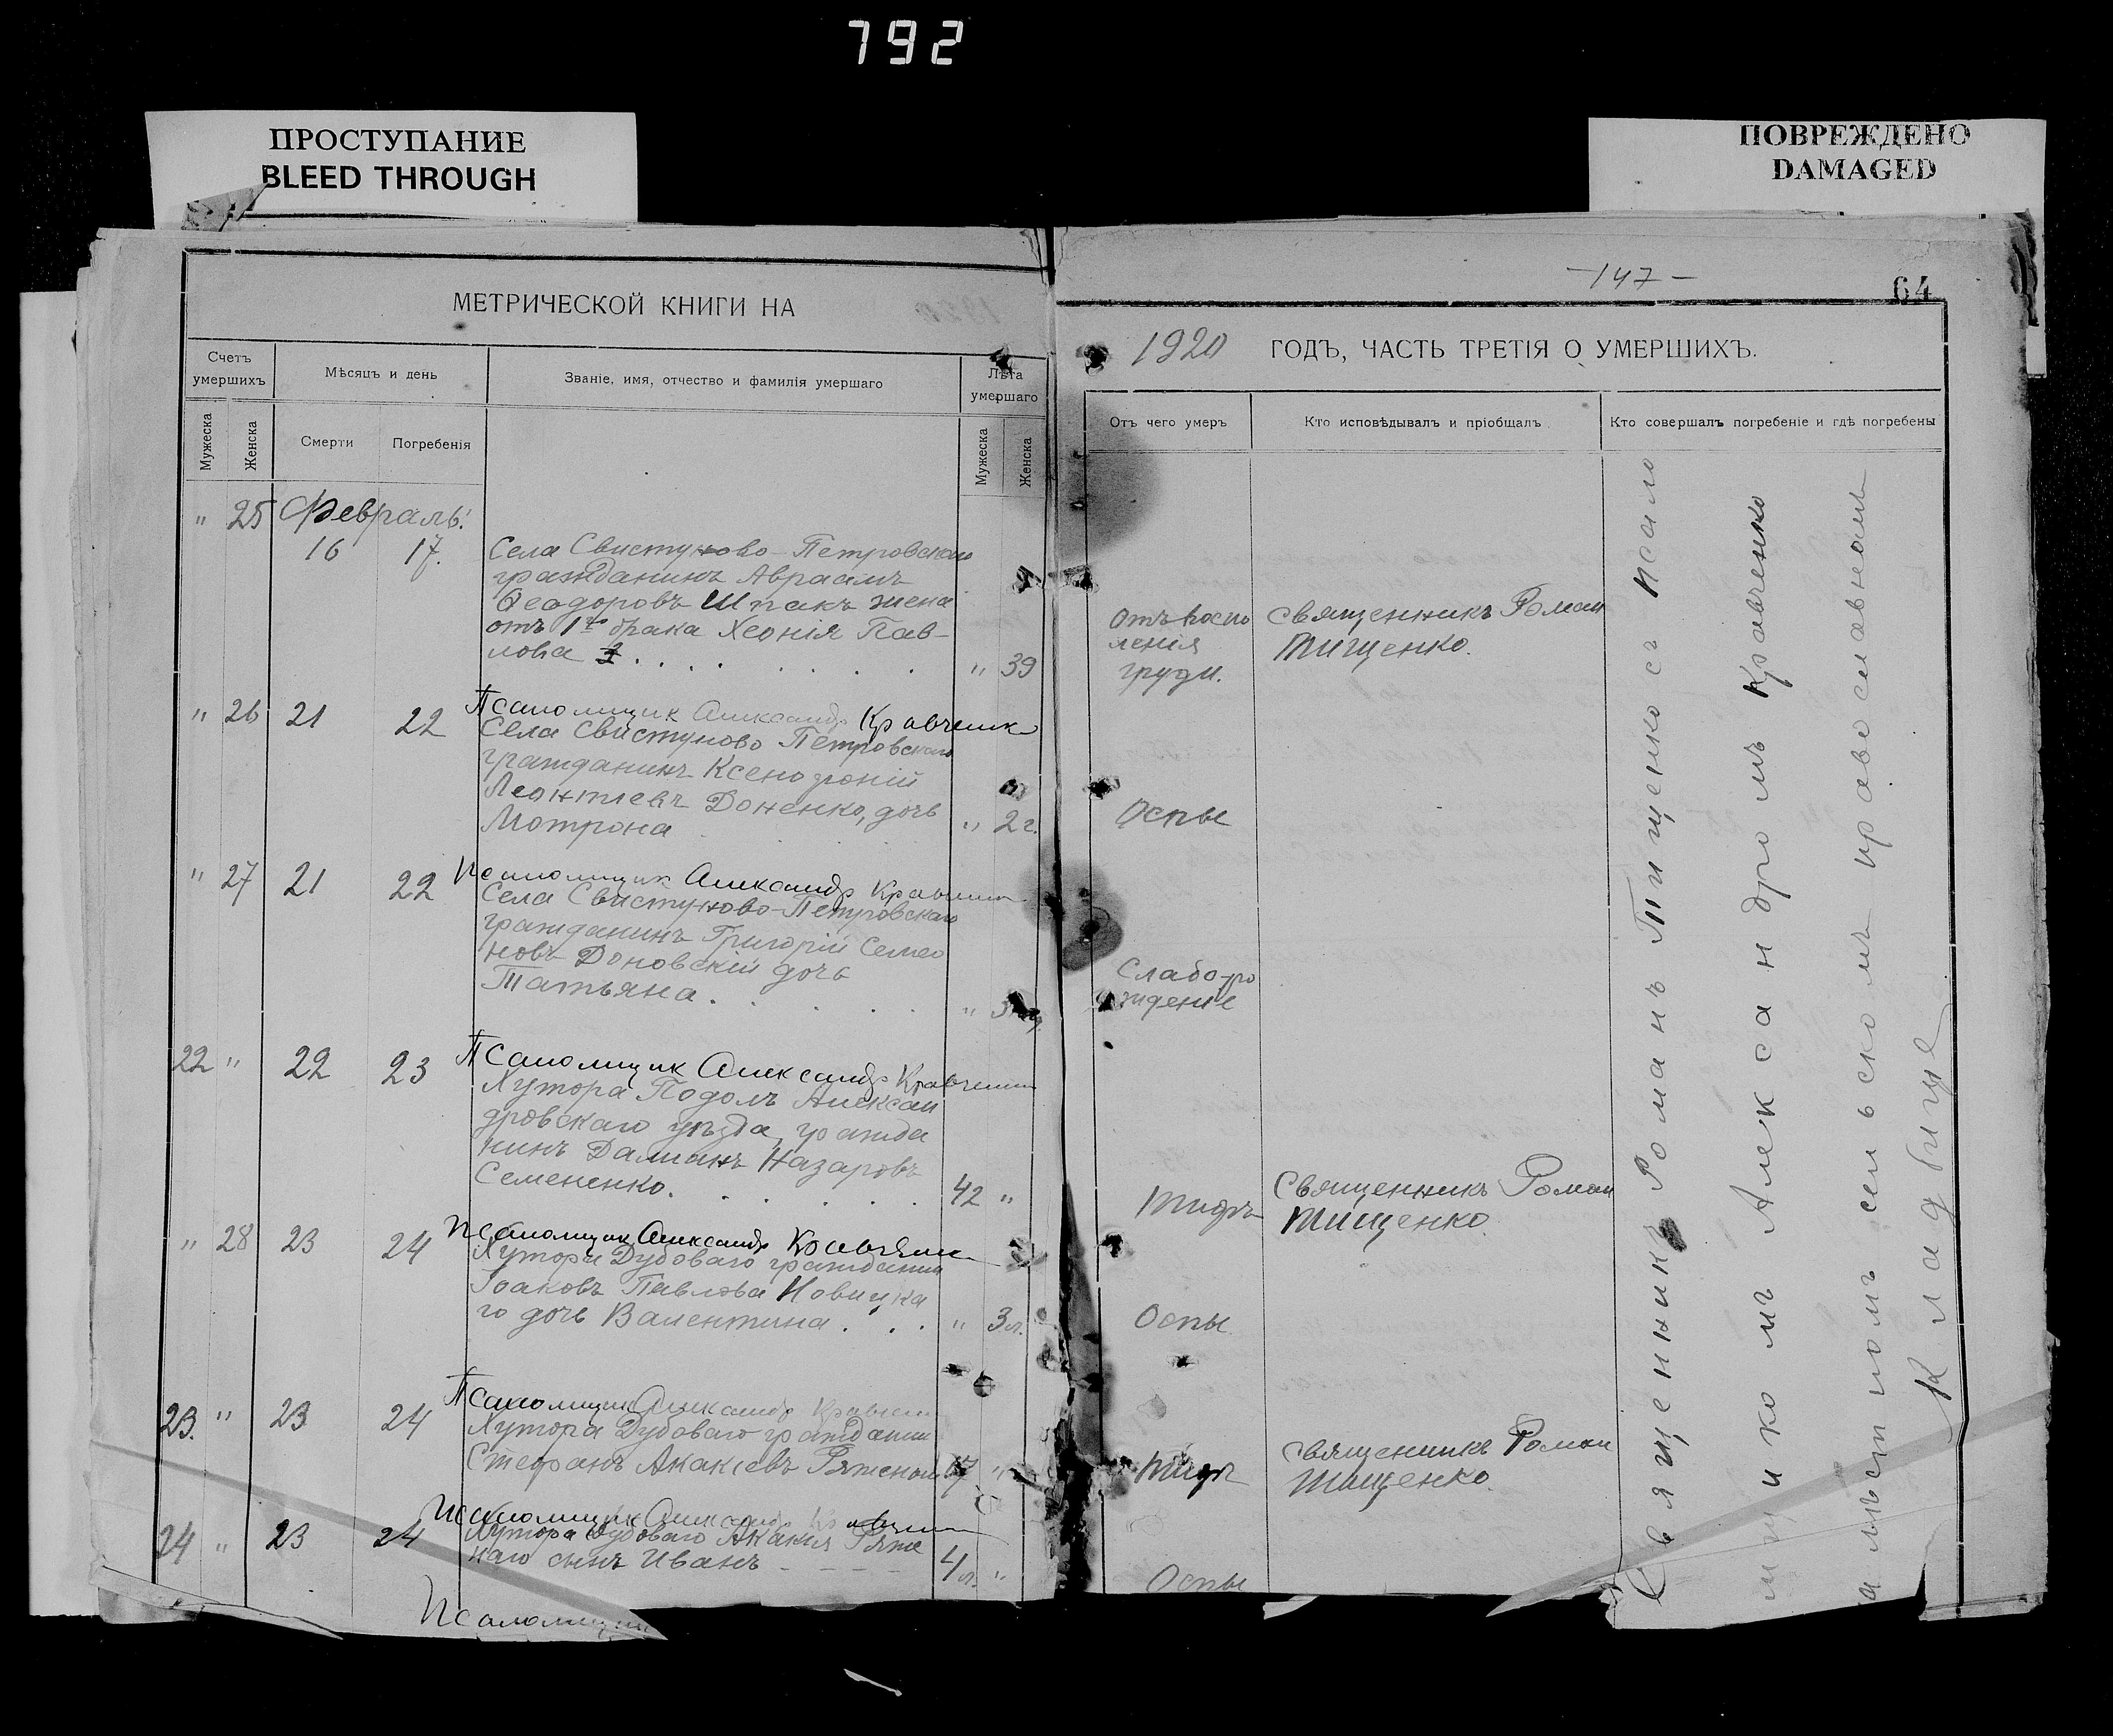 792
ПРОСТУПАНИЕ
BLEED THROUGH
ПОВРЕЖДЕНО
DAMAGED
МЕТРИЧЕСКОЙ КНИГИ НА
Счетъ умершихъ
Мѣсяцъ и день
Званіе, имя, отчество и фамилія умершаго
Лѣта умершаго
Мужеска
Женска
Смерти
Погребенія
Мужеска
Женска
" 25 Февраль.
16 17. Села Свистуново-Петровскаго
гражданинъ Авраамъ
Ѳеодоровъ Шпакъ жена
отъ 1го брака Хеонія Пав-
лова " 39
Псаломщик Александр Кравченко
" 26 21 22 Села Свистуново Петровскаго
гражданинъ Ксенофоній
Леонтіевъ Доненко, дочь
Мотрона " 2 г.
Псаломщик Александр Кравченко
" 27 21 22 Села Свистуново-Петровскаго
гражданинъ Григорій Семео
новъ Доновскій дочь
Татьяна. " 3
Псаломщик Александр Кравченко
22 " 22 23 Хутора Подолъ Алексан
дровскаго уѣзда, гражда
нинъ Даміанъ Назаровъ
Семененко. 42 "
Псаломщик Александр Кравченко
" 28 23 24 Хутора Дубоваго гражданин
Іоаковъ Павлова Новицка
го дочь Валентина . . . " 3 л.
Псаломщик Александр Кравченко
23. " 23 24 Хутора Дубоваго граждани
Стефанъ Акакіевъ 17 "
Псаломщик Александр Кравченко
24 " 23 24 Хутора Дубоваго Акакія Ряже
наго сынъ Иванъ 4 л. "
Псаломщик
-147-
64
1920 ГОДЪ, ЧАСТЬ ТРЕТІЯ О УМЕРШИХЪ.
Отъ чего умеръ
Кто исповѣдывалъ и пріобщалъ
Кто совершалъ погребеніе и гдѣ погребены
Отъ воспа Священникъ Роман
ленія Тищенко.
груди.
Оспы
Слаборо
жденіе
Священникъ Роман
Тифъ Тищенко.
Оспы
Священникъ Роман
Тифъ Тищенко.
Оспы
Священникъ Романъ Тищенко съ псало
мщикомъ Александромъ Кравченко
на мѣстномъ сельскомъ православномъ
Кладбище